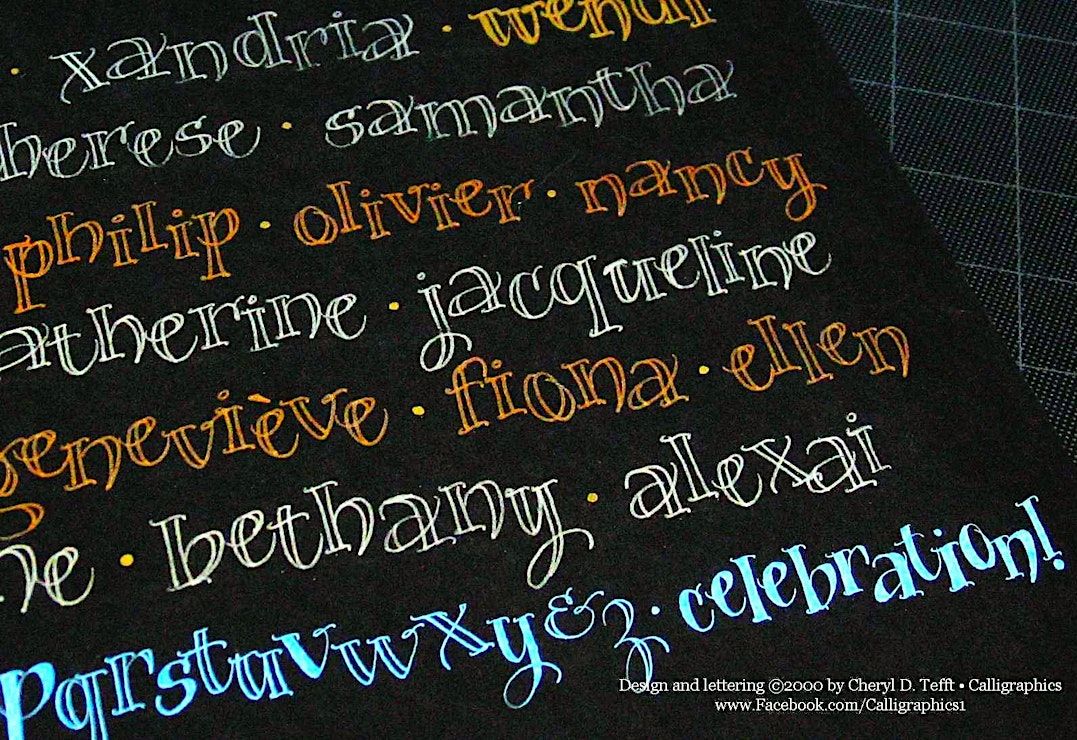 · xandria · wendi
herese · samantha
philip · olivier · nancy
atherine · jacqueline
geneviève · fiona · ellen
ne · bethany · alexai
pqrstuvwxy&z · celebration!
Design and lettering ©2000 by Cheryl D. Tefft • Calligraphics
www.Facebook.com/Calligraphics1